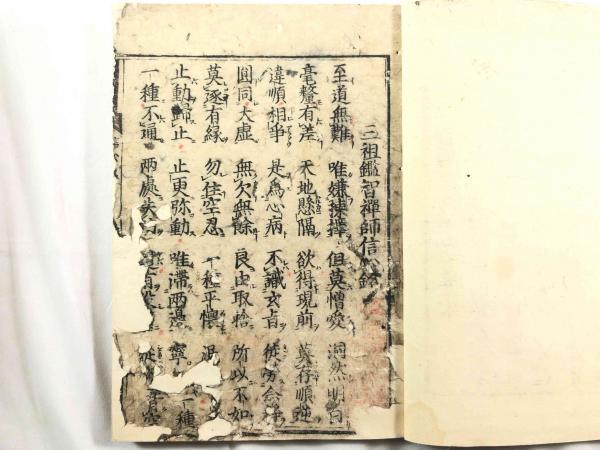 三祖鑑智禪師信銘
至道無難 唯嫌揀擇 但莫憎愛 洞然明白
毫釐有差 天地懸隔 欲得現前 莫存順逆
違順相爭 是爲心病 不識玄旨 徒勞念
圓同大虛 無欠無餘 良由取捨 所以不如
莫逐有緣 勿住空忍 一種平懷 泯
止動歸止 止更弥動 唯滯兩邊 寧 一種
一種不通 兩處失 有 從